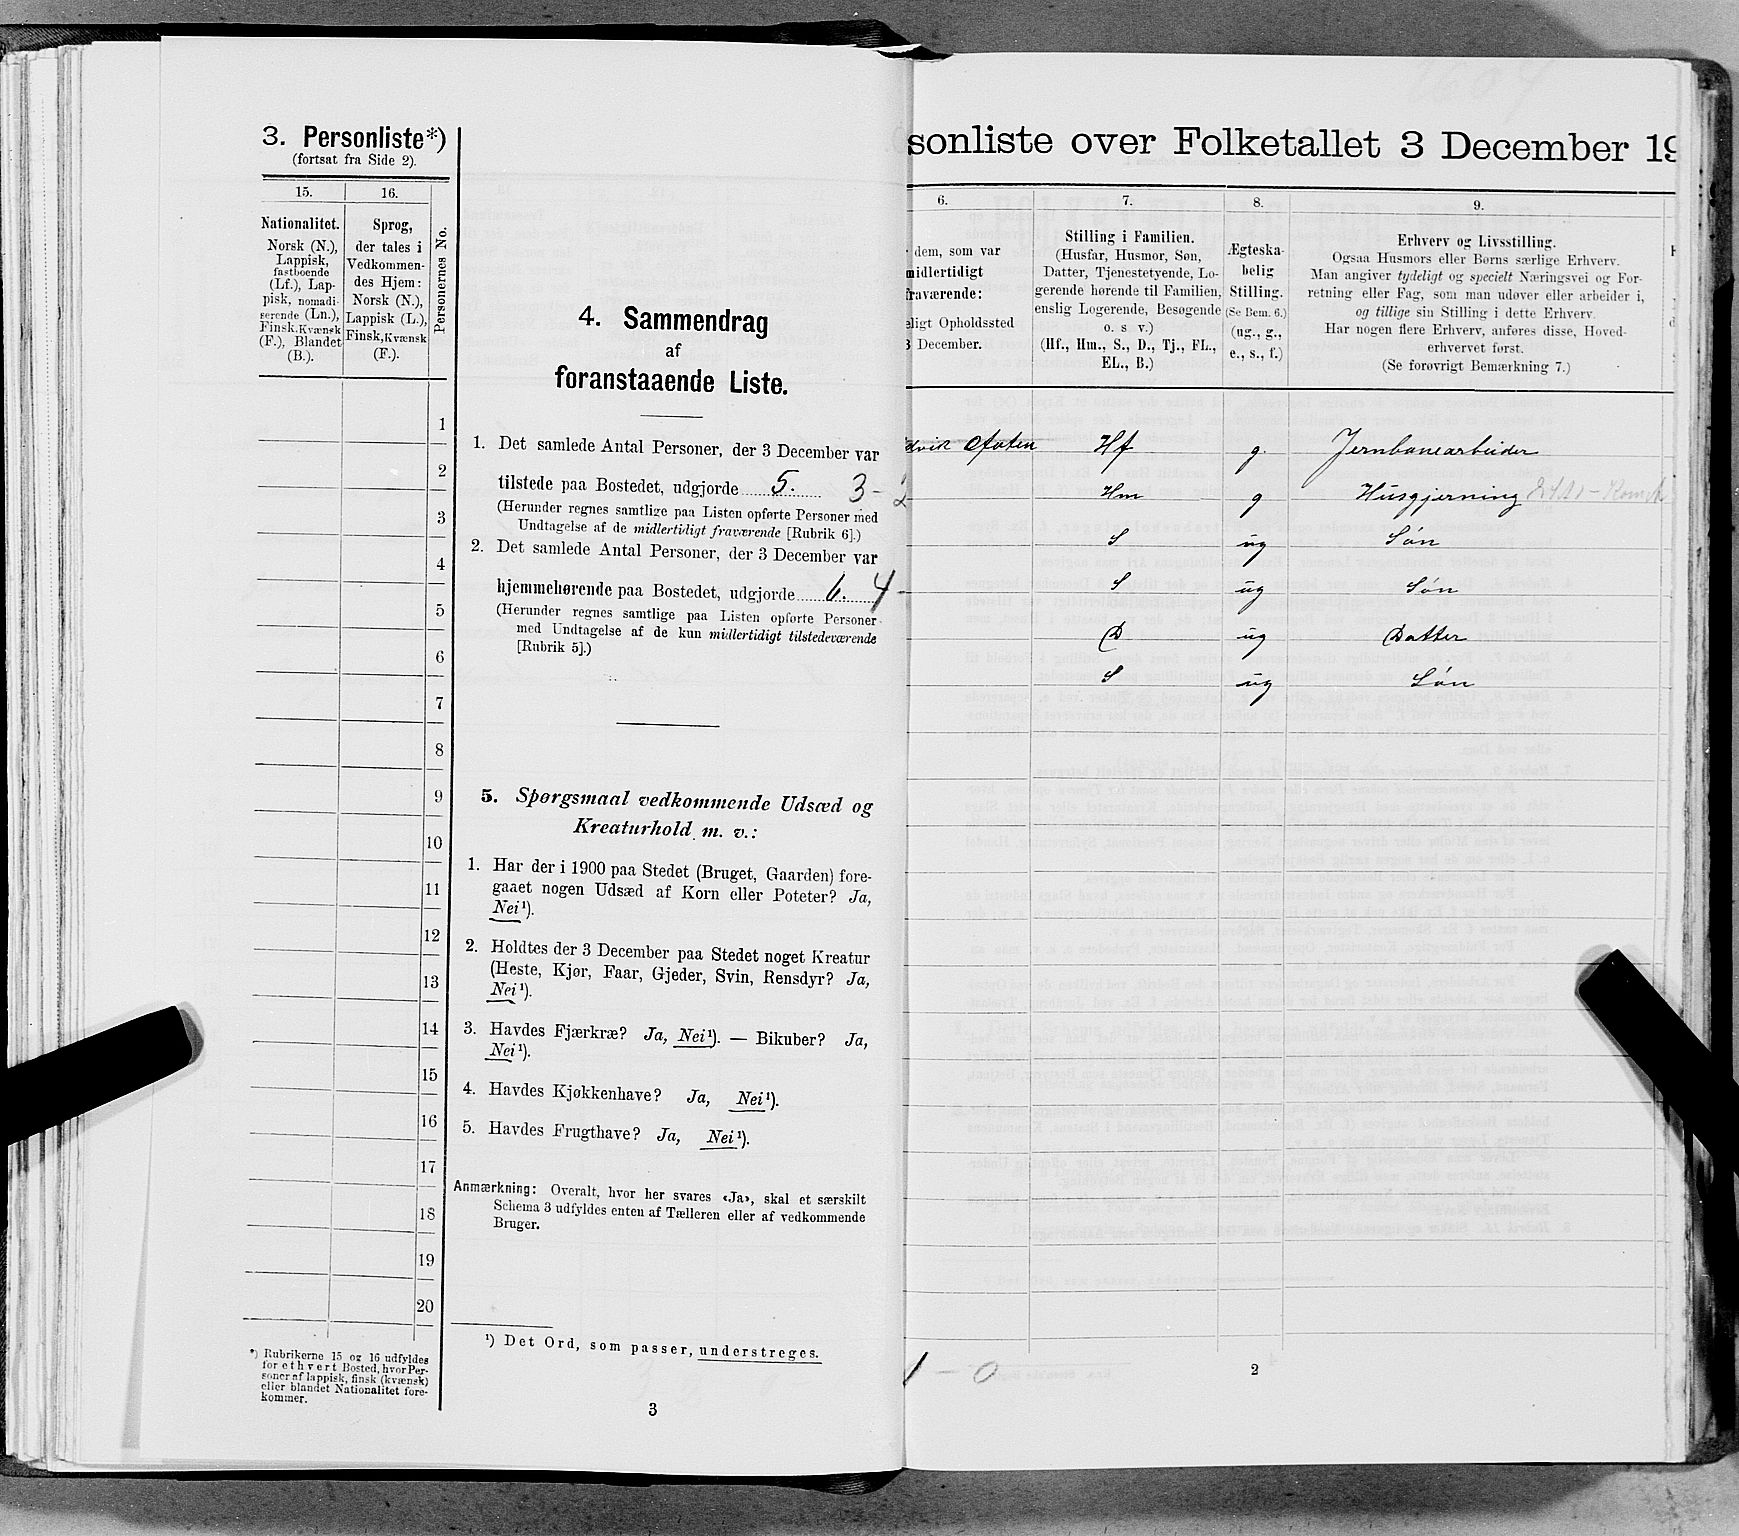 3. Personliste*)
(fortsat fra Side 2).
15.
16.
Personernes No.
Nationalitet.
Norsk (N.),
Lappisk,
fastboende
(Lf.), Lap-
pisk, nomadi-
serende (Ln.),
Finsk, Kvænsk
(F.), Blandet
(B.).
Sprog,
der tales i
Vedkommen-
des Hjem:
Norsk (N.),
Lappisk (L.),
Finsk, Kvænsk
(F.).
1
2
3
4
5
6
7
8
9
10
11
12
13
14
15
16
17
18
19
20
*) Rubrikerne 15 og 16 udfyldes
for ethvert Bosted, hvor Per-
soner af lappisk, finsk (kvænsk)
eller blandet Nationalitet fore-
kommer.
4. Sammendrag
af
foranstaaende Liste.
1. Det samlede Antal Personer, der 3 December var
tilstede paa Bostedet, udgjorde 5. 3 - 2
(Herunder regnes samtlige paa Listen opførte Personer med
Undtagelse af de midlertidigt fraværende [Rubrik 6].)
2. Det samlede Antal Personer, der 3 December var
hjemmehørende paa Bostedet, udgjorde 6. 4 -
(Herunder regnes samtlige paa Listen opførte Personer
med Undtagelse af de kun midlertidigt tilstedeværende
[Rubrik 5].)
5. Spørgsmaal vedkommende Udsæd og
Kreaturhold m. v.:
1. Har der i 1900 paa Stedet (Bruget, Gaarden) fore-
gaaet nogen Udsæd af Korn eller Poteter? Ja,
Nei¹).
2. Holdtes der 3 December paa Stedet noget Kreatur
(Heste, Kjør, Faar, Gjeder, Svin, Rensdyr? Ja,
Nei¹).
3. Havdes Fjærkræ? Ja, Nei¹). — Bikuber? Ja,
Nei¹).
4. Havdes Kjøkkenhave? Ja, Nei¹).
5. Havdes Frugthave? Ja, Nei¹).
Anmærkning: Overalt, hvor her svares «Ja», skal et særskilt
Schema 3 udfyldes enten af Tælleren eller af vedkommende
Bruger.
¹) Det Ord, som passer, understreges.
3
sonliste over Folketallet 3 December 19
6.
7.
8.
9.
dem, som var
midlertidigt
fraværende:
eligt Opholdssted
3 December.
Stilling i Familien.
(Husfar, Husmor, Søn,
Datter, Tjenestetyende, Lo-
gerende hørende til Familien,
enslig Logerende, Besøgende
o. s v.)
(Hf., Hm., S., D., Tj., FL.,
EL., B.)
Ægteska-
belig
Stilling.
(Se Bem. 6.)
(ug., g.,
e., s., f.)
Erhverv og Livsstilling.
Ogsaa Husmors eller Børns særlige Erhverv.
Man angiver tydeligt og specielt Næringsvei og For-
retning eller Fag, som man udøver eller arbeider i,
og tillige sin Stilling i dette Erhverv.
Har nogen flere Erhverv, anføres disse, Hoved-
erhvervet først.
(Se forøvrigt Bemærkning 7.)
dvik Ofoten Hf g. Jernbanearbeider
Hm g Husgjerning
S ug Søn
S ug Søn
D ug Datter
S ug Søn
1 - 0
2